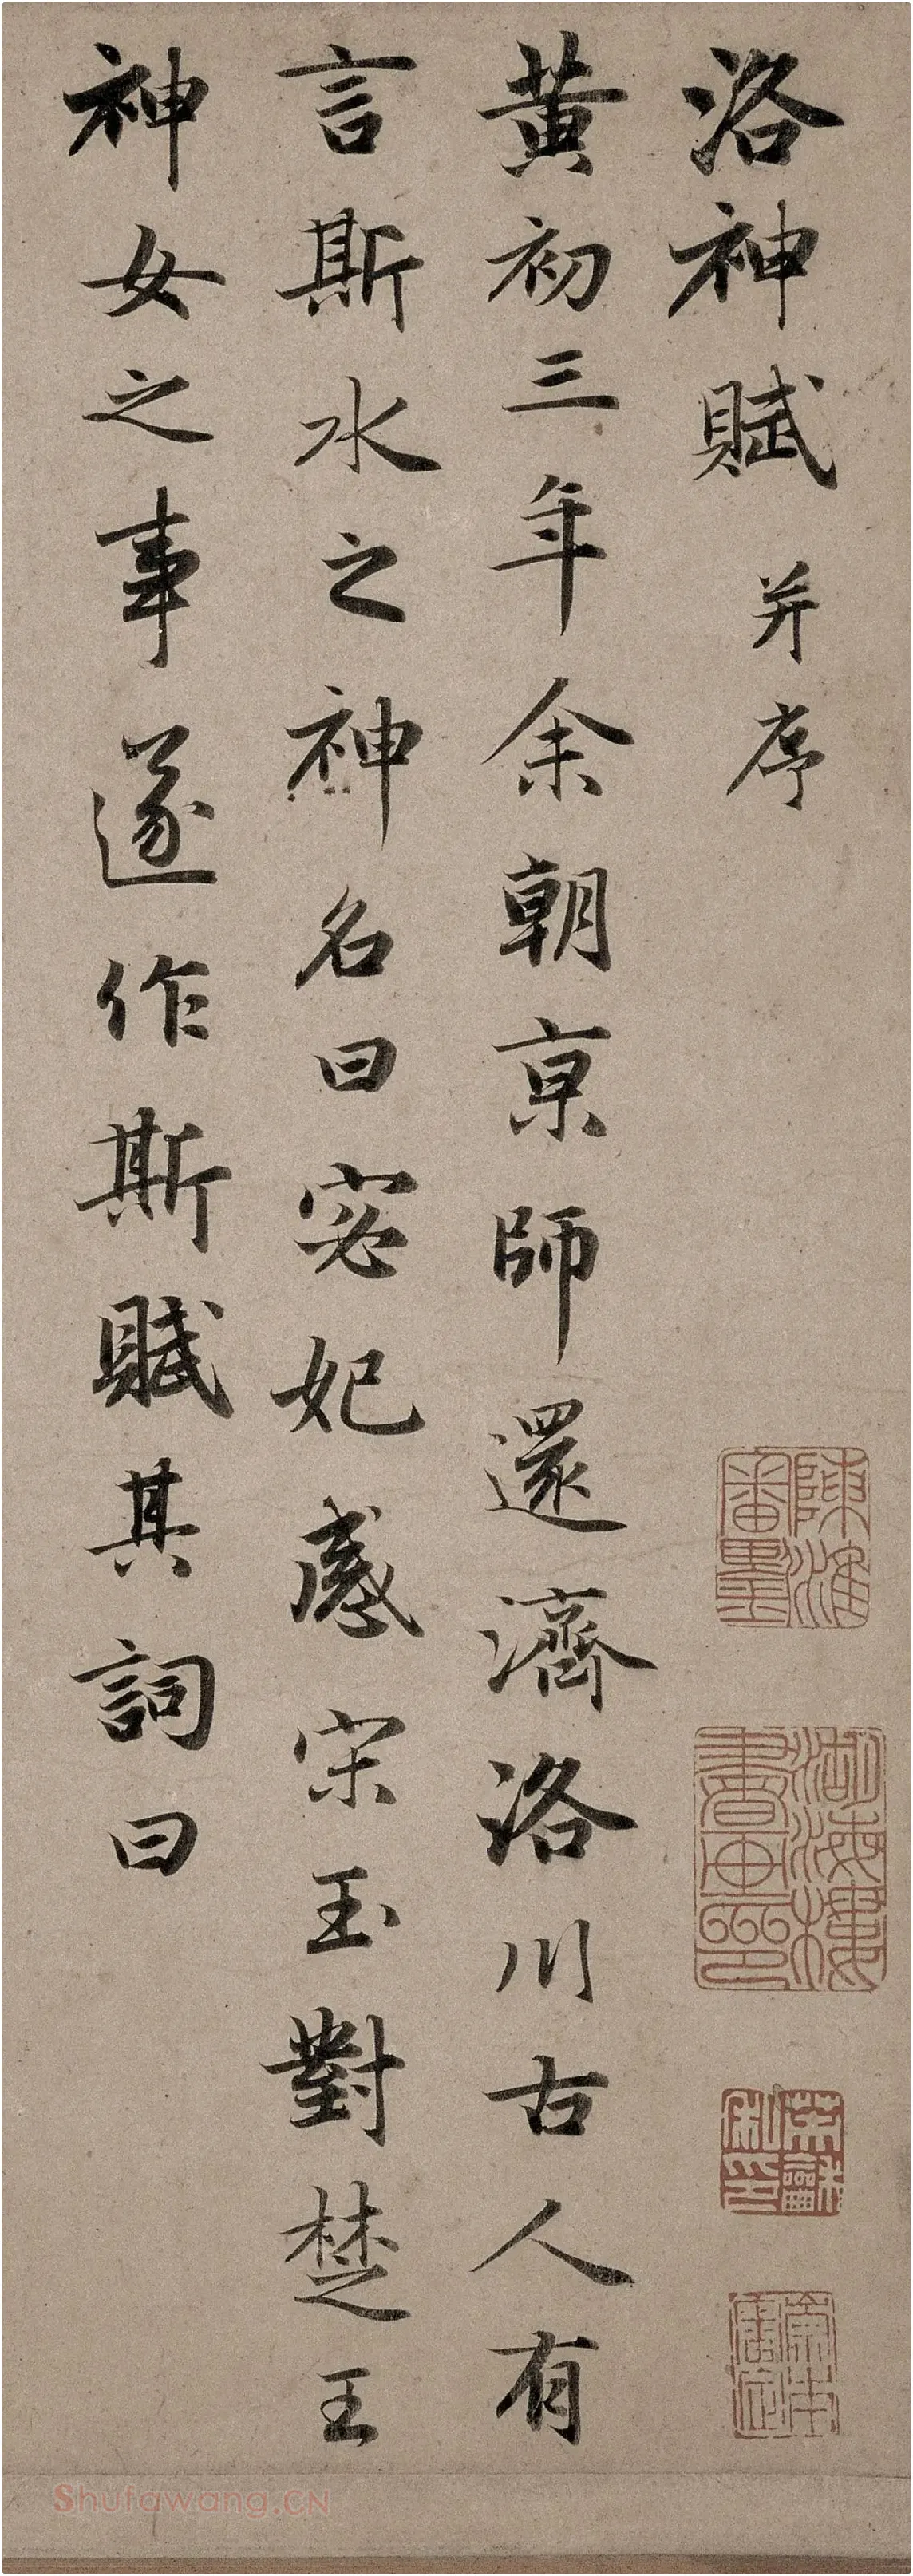 洛神賦 并序
黄初三年余朝京師還濟洛川古人有
言斯水之神名曰宓妃感宋玉對楚王
神女之事遂作斯賦其詞曰
陳淮審墨
海樓書畫印
Shufawang.CN